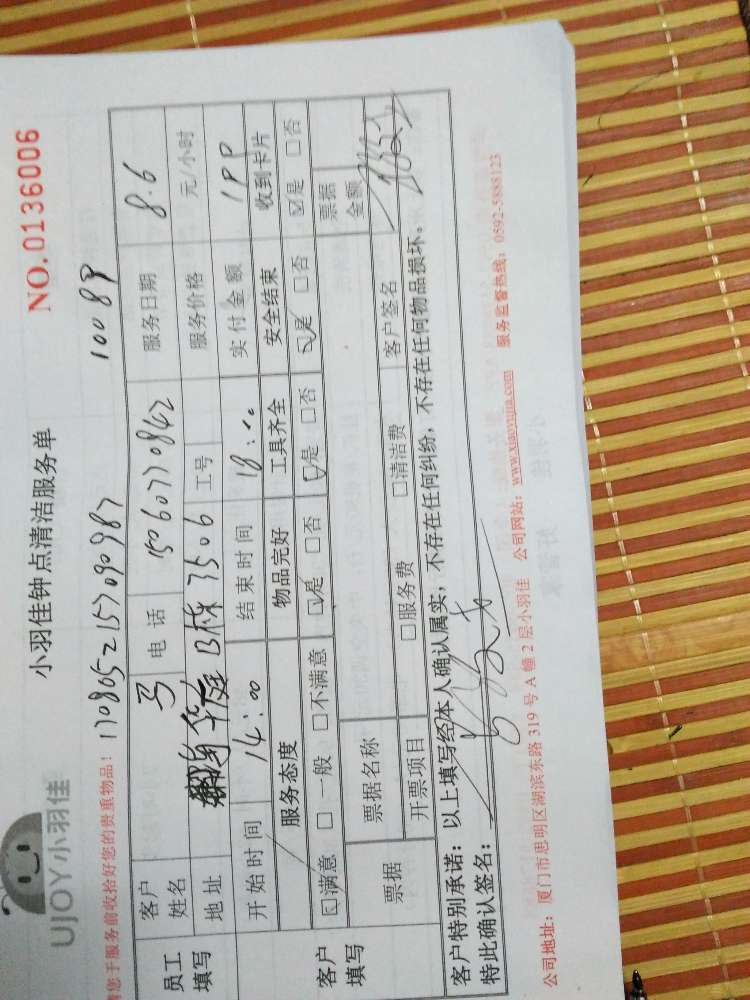 UJOY小羽佳
小羽佳钟点清洁服务单
NO.0136006
您于服务前收拾好您的贵重物品！ 1708052157090987 10089
员工填写 客户姓名 马 电话 15060770842 服务日期 8.6
地址 华庭B栋3506 工号 服务价格 元/小时
开始时间 14:00 结束时间 18:00 实付金额 199
客户填写 服务态度 物品完好 工具齐全 安全结束 收到卡片
☑满意 □一般 □不满意 ☑是 □否 ☑是 □否 ☑是 □否 ☑是 □否
票据 票据名称 票据金额
开票项目 □服务费 □清洁费 客户签名
客户特别承诺：以上填写经本人确认属实，不存在任何纠纷，不存在任何物品损坏。
特此确认签名：
公司地址：厦门市思明区湖滨东路 319 号 A 幢 2 层小羽佳 公司网站：www.xiaoyujia.com 服务监督热线：0592-5888123